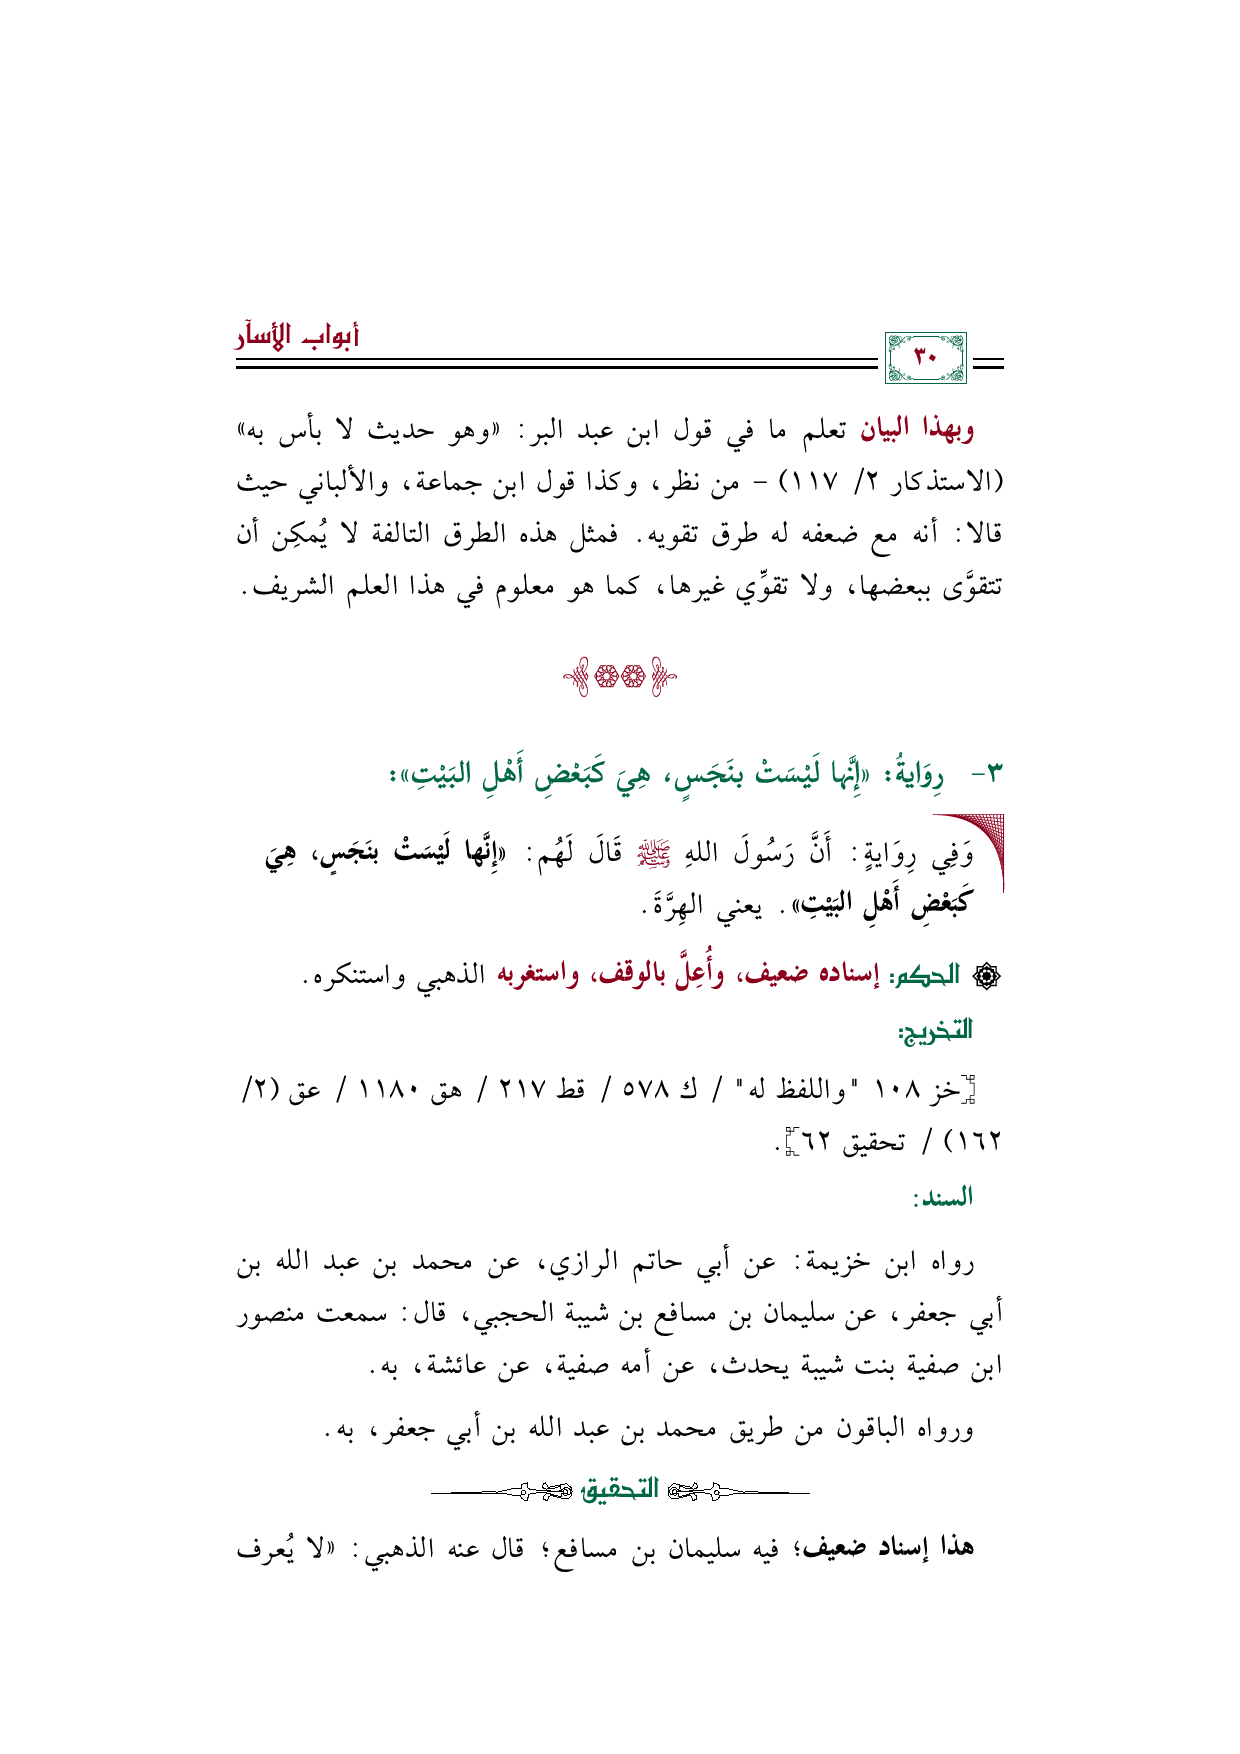 أبواب الأسآر
٣٠
وبهذا البيان تعلم ما في قول ابن عبد البر: «وهو حديث لا بأس به»
(الاستذكار ٢/ ١١٧) - من نظر، وكذا قول ابن جماعة، والألباني حيث
قالا: أنه مع ضعفه له طرق تقويه. فمثل هذه الطرق التالفة لا يُمكِن أن
تتقوَّى ببعضها، ولا تقوِّي غيرها، كما هو معلوم في هذا العلم الشريف.
٣- رِوَايةُ: «إِنَّها لَيْسَتْ بنَجَسٍ، هِيَ كَبَعْضِ أَهْلِ البَيْتِ»:
وَفِي رِوَايةٍ: أَنَّ رَسُولَ اللهِ ﷺ قَالَ لَهُم: «إِنَّها لَيْسَتْ بنَجَسٍ، هِيَ
كَبَعْضِ أَهْلِ البَيْتِ». يعني الهِرَّةَ.
الحكم: إسناده ضعيف، وأُعِلَّ بالوقف، واستغربه الذهبي واستنكره.
التخريج:
[خز ١٠٨ "واللفظ له" / ك ٥٧٨ / قط ٢١٧ / هق ١١٨٠ / عق (٢/
١٦٢) / تحقيق ٦٢].
السند:
رواه ابن خزيمة: عن أبي حاتم الرازي، عن محمد بن عبد الله بن
أبي جعفر، عن سليمان بن مسافع بن شيبة الحجبي، قال: سمعت منصور
ابن صفية بنت شيبة يحدث، عن أمه صفية، عن عائشة، به.
ورواه الباقون من طريق محمد بن عبد الله بن أبي جعفر، به.
التحقيق
هذا إسناد ضعيف؛ فيه سليمان بن مسافع؛ قال عنه الذهبي: «لا يُعرف